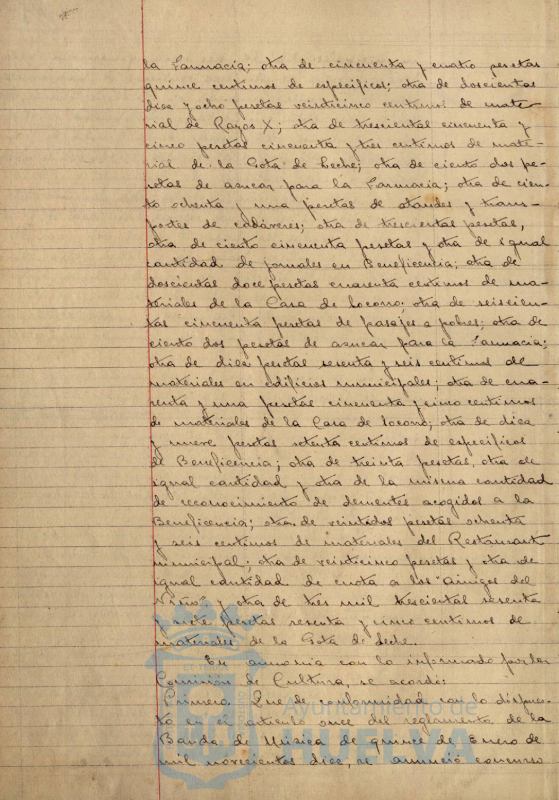 la Farmacia; otra de cincuenta y cuatro pesetas
quince centimos de especificos; otra de doscientas
diez y ocho pesetas veinticinco centimos de mate-
rial de Rayos X; otra de trescientas cincuenta y
cinco pesetas cincuenta y tres centimos de mate-
rial de la Gota de Leche; otra de ciento dos pe-
setas de azucar para la Farmacia; otra de cien-
to ochenta y una pesetas de ataudes y trans-
portes de cadáveres; otra de trescientas pesetas,
otra de ciento cincuenta pesetas y otra de igual
cantidad de jornales en Beneficencia; otra de
doscientas doce pesetas cuarenta centimos de ma-
teriales de la Casa de Socorro; otra de seiscien-
tas cincuenta pesetas de pasajes a pobres; otra de
ciento dos pesetas de azucar para la Farmacia;
otra de diez pesetas sesenta y seis centimos de
materiales en edificios municipales; otra de cua-
renta y una pesetas cincuenta y cinco centimos
de materiales de la Casa de Socorro; otra de diez
y nueve pesetas setenta centimos de especificos
de Beneficencia; otra de treinta pesetas, otra de
igual cantidad y otra de la misma cantidad
de reconocimiento de dementes acogidos a la
Beneficencia; otra de veintidos pesetas ochenta
y seis centimos de materiales del Restaurant
municipal; otra de veinticinco pesetas y otra de
igual cantidad de cuota a los "Amigos del
Niño" y otra de tres mil trescientas sesenta
y siete pesetas sesenta y cinco centimos de
materiales de la Gota de Leche.
En armonia con lo informado por la
Comisión de Cultura, se acordó:
Primero. Que de conformidad con lo dispues-
to en el articulo once del reglamento de la
Banda de Música de quince de Enero de
mil novecientos diez, se anuncie concurso
Ayuntamiento de
HUELVA